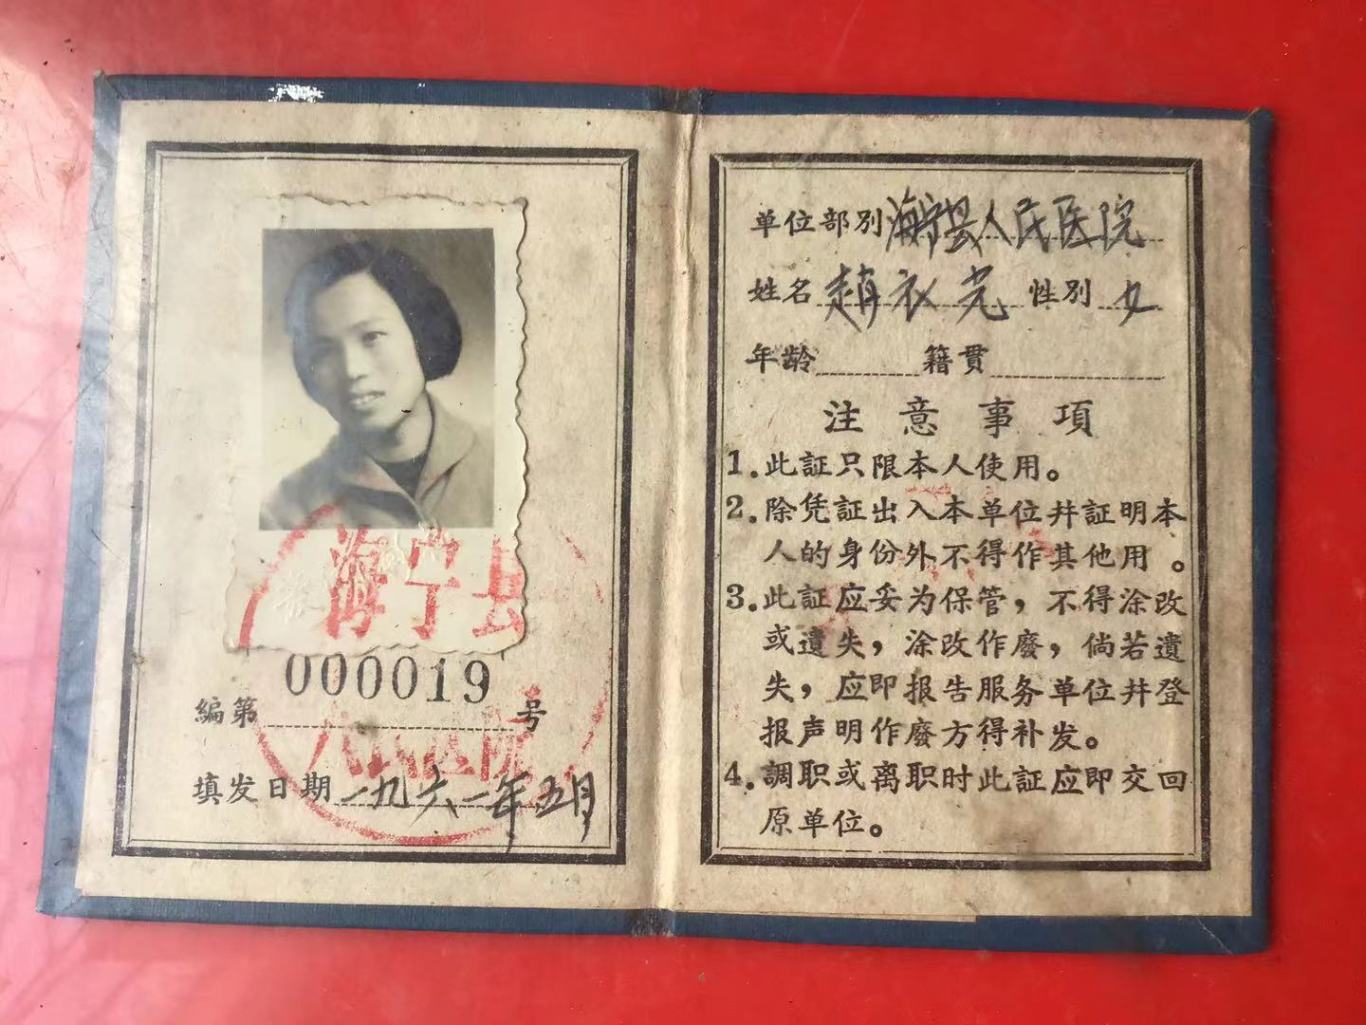 海宁县
000019
編第 号
人民医院
填发日期 一九六一年五月
单位部別 海宁县人民医院
姓名 趙衣光 性別 女
年龄 籍貫
注意事項
1.此証只限本人使用。
2.除凭証出入本单位幷証明本
人的身份外不得作其他用。
3.此証应妥为保管，不得涂改
或遺失，涂改作廢，倘若遺
失，应即报告服务单位幷登
报声明作廢方得补发。
4.調职或离职时此証应即交回
原单位。